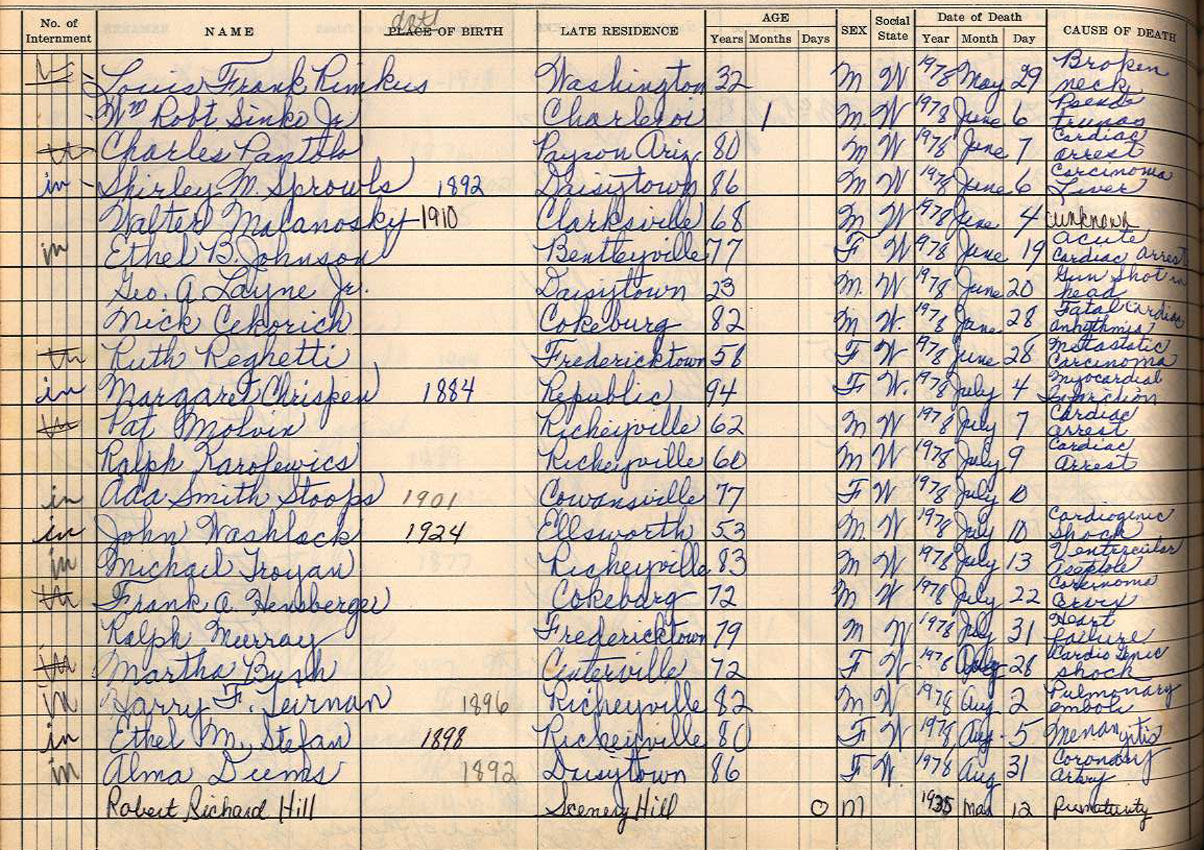 No. of Internment NAME date PLACE OF BIRTH LATE RESIDENCE AGE Years Months Days SEX Social State Date of Death Year Month Day CAUSE OF DEATH
Louis Frank Rimkus Washington 32 M W 1978 May 29 Broken neck
Wm Robt Sinko Jr Charleroi 1 M. W 1978 June 6
Charles Pantolo Payson Ariz 80 M W 1978 June 7 Cardiac arrest
in Shirley M. Sprowls 1892 Daisytown 86 M W 1978 June 6 Carcinoma Liver
Walter Malanosky 1910 Clarksville 68 M W 1978 June 4 unknown
in Ethel B. Johnson Bentleyville 77 F W 1978 June 19 Acute Cardiac Arrest
Geo. A. Layne Jr. Daisytown 23 M. W 1978 June 20 Gun Shot in head
Nick Cekorich Cokeburg 82 M W. 1978 June 28 Fatal Cardiac
Ruth Reghetti Fredericktown 58 F W 1978 June 28 Metastatic Carcinoma
in Margaret Chrispen 1884 Republic 94 F W. 1978 July 4 Myocardial
Pat Molvix Richeyville 62 M W 1978 July 7 Cardiac arrest
Ralph Karolewics Richeyville 60 M W 1978 July 9 Cardiac Arrest
in Ada Smith Stoops 1901 Cowansville 77 F W 1978 July 10
in John Washlack 1924 Ellsworth 53 M. W 1978 July 10 Cardiogenic Shock
in Michael Troyan Richeyville 83 M W 1978 July 13
Frank A. Hensberger Cokeburg 72 M W 1978 July 22
Ralph Murray Fredericktown 79 M W 1978 July 31 Heart failure
Martha Bush Centerville 72 F W 1978 28 Cardio Genic shock
in Harry F. Teirnan 1896 Richeyville 82 M W 1978 Aug 2 Pulmonary emboli
in Ethel M. Stefan 1898 Richeyville 80 F W 1978 Aug 5
in Alma Deems 1892 Daisytown 86 F W 1978 Aug 31 Coronary
Robert Richard Hill Scenery Hill 0 M 1935 Mar 12 Prematurity